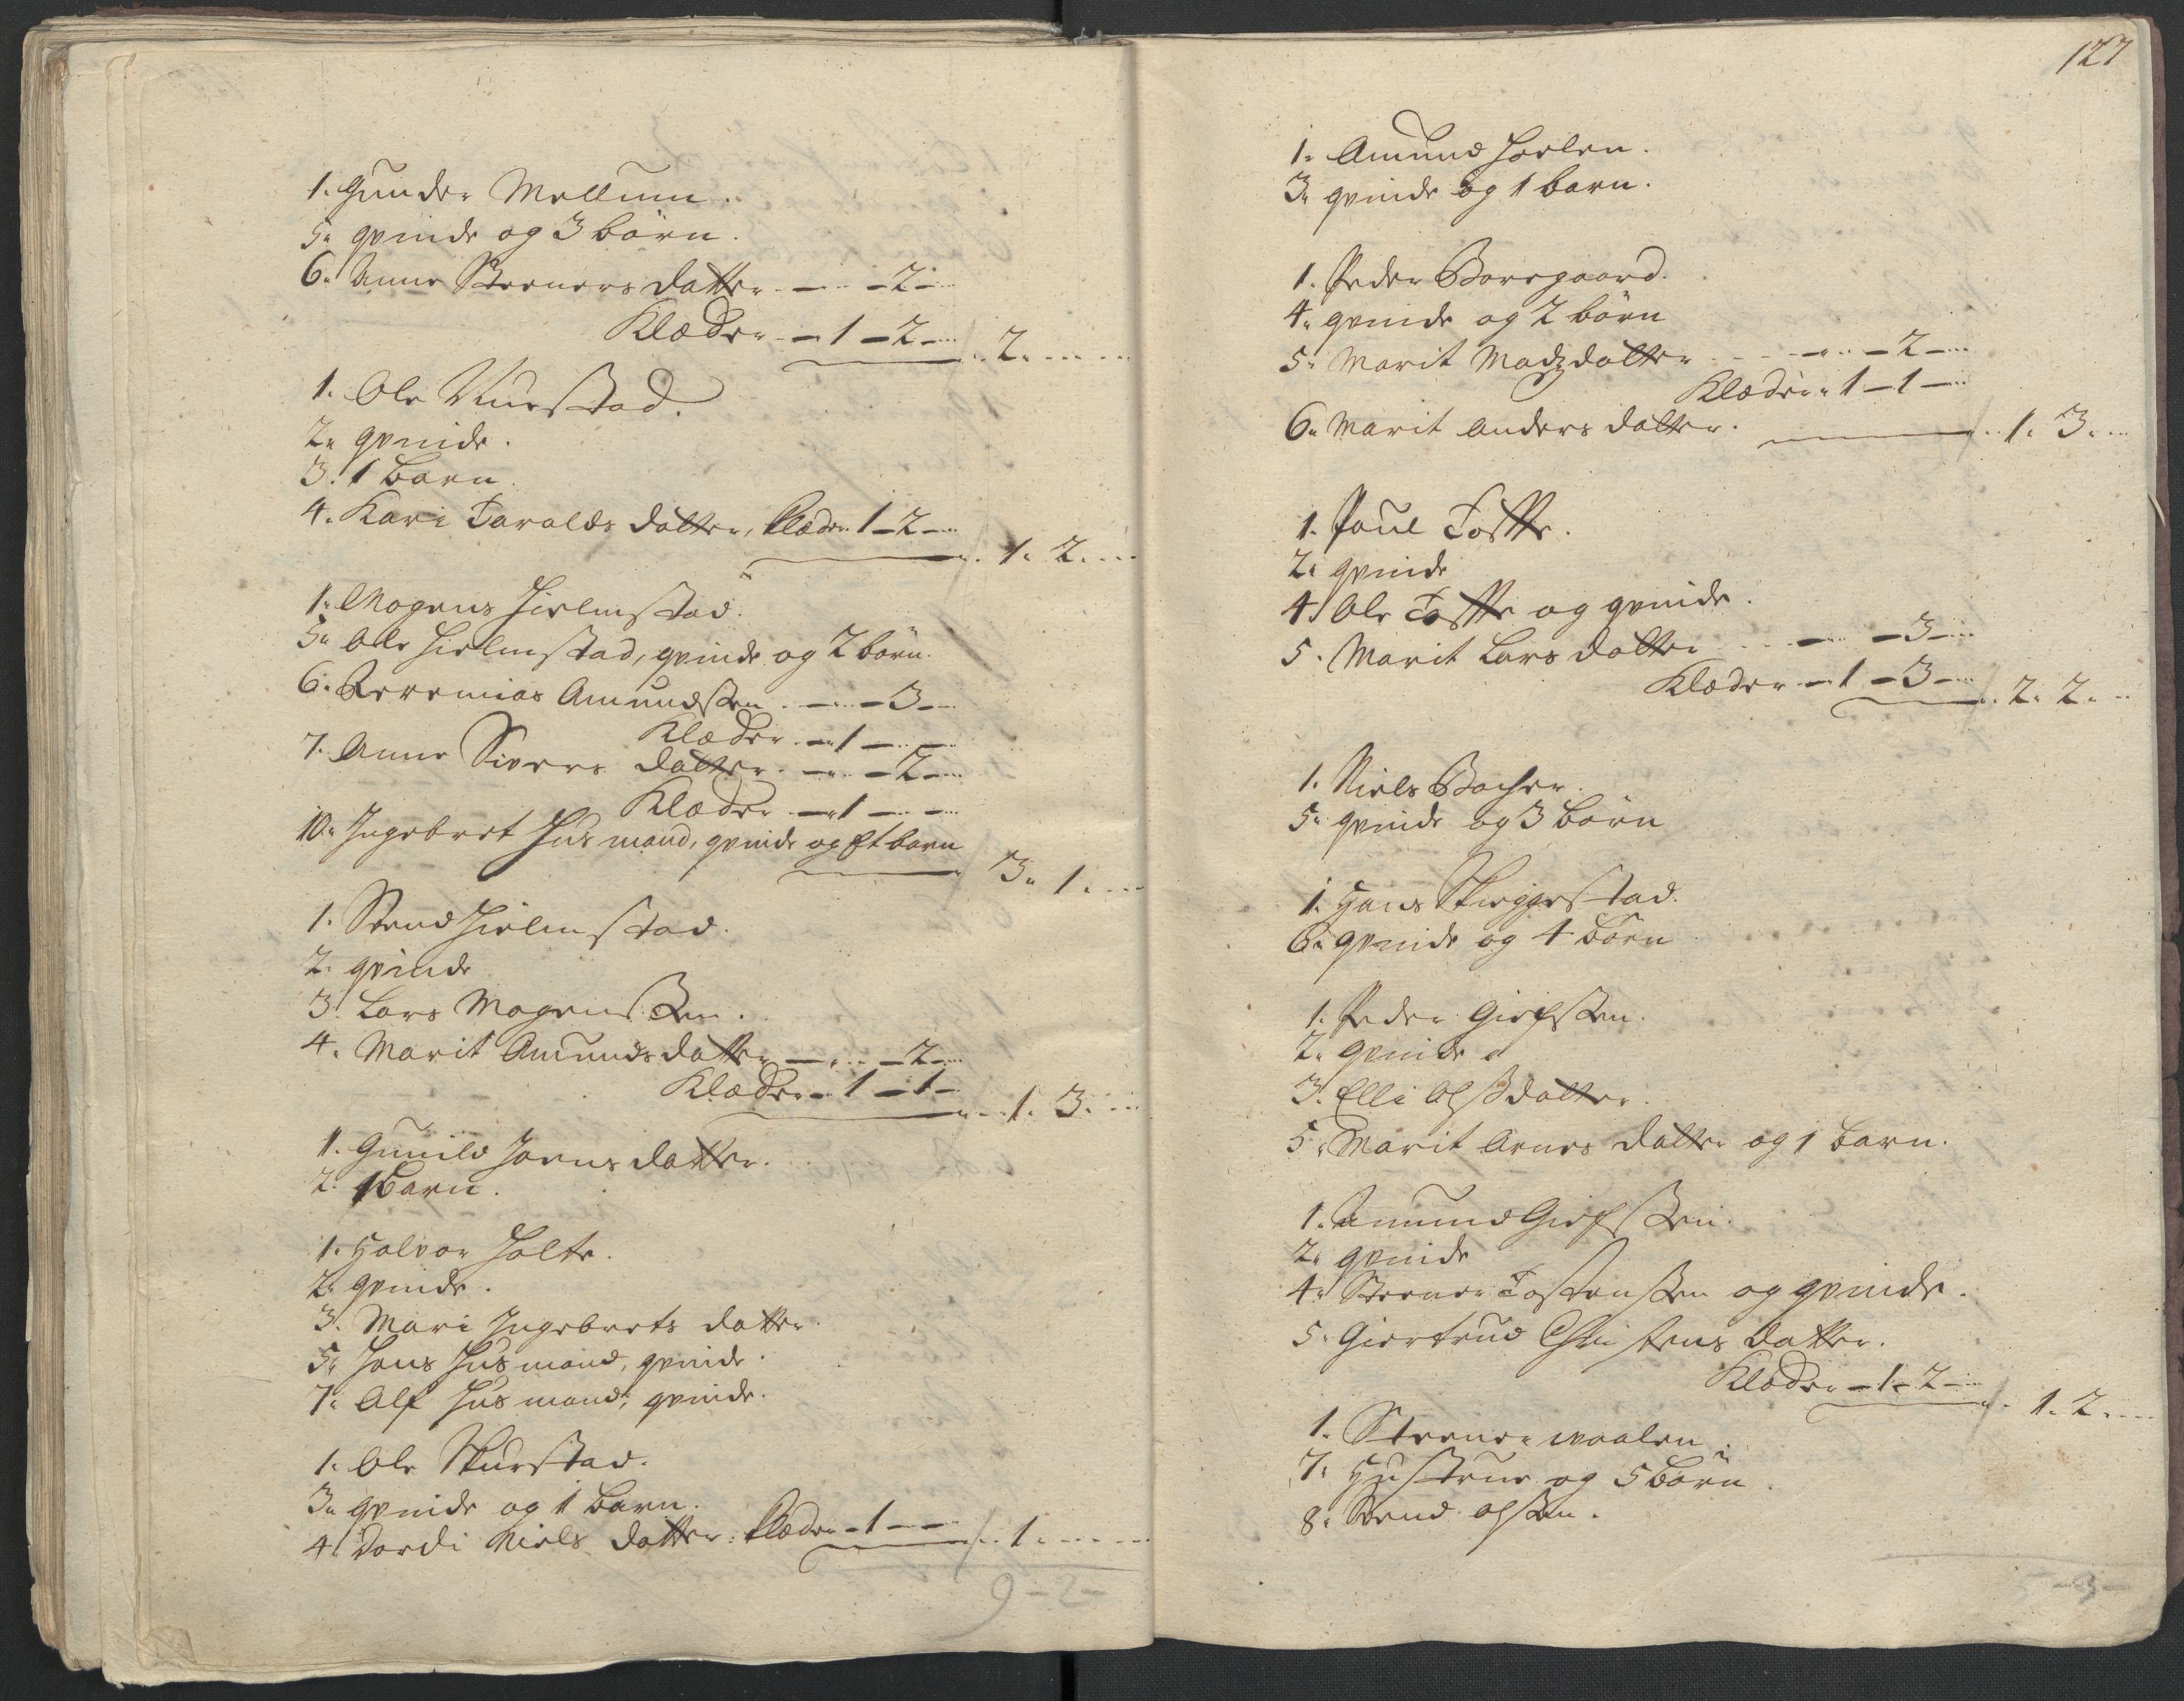 1. Gunder Mellum.
5. qvinde og 3 börn.
6. Anne Steeners datter. — — 2 —
Klæder — 1 — 2 — 2.
1. Ole
2. qvinde.
3. 1 barn.
4. Kari Taralds datter, klæder 1 — 2 —
1. 2.
1. Mogens Hielmstad.
5. Ole Hielmstad, qvinde og 2 börn.
6. Jeremias Amundsen. — — 3 —
Klæder — 1 —
7. Anne Sivers datter. — — 2 —
Klæder — 1 —
10. Ingebret Husmand, qvinde og Et barn
3. 1.
1. Svend Hielmstad.
2. qvinde
3. Lars Mogensen.
4. Marit Amunds datter — — 2 —
Klæder — 1 — 1 —
1. 3.
1. Gunild Joens datter.
2. 1 Barn.
1. Halvor Holte.
2. qvinde.
3. Mari Ingebrets datter.
5. Hans Husmand, qvinde.
7. Alf Husmand, qvinde.
1. Ole Skurstad.
3. qvinde og 1 barn.
4. Dordi Niels datter. klæder — 1 — 1.
9 – 2 –
127
1. Amund Hoelen.
3. qvinde og 1 barn.
1. Peder Borgaard.
4. qvinde og 2 börn
5. Marit Madzdatter — — 2 —
Klæder 1 — 1 —
6. Marit Anders datter. 1. 3.
1. Poul Tofte.
2. qvinde
4. Ole Tofte og qvinde.
5. Marit Lars datter — — 3 —
Klæder — 1 — 3 — 2. 2.
1. Niels
5. qvinde og 3 börn
1. Hans Skiggestad.
6. qvinde og 4 börn
1. Peder Giefsen.
2. qvinde
3. Elli Olsdatter.
5. Marit Arnes datter og 1 barn.
1. Amund Giefsen.
2. qvinde
4. Steener Tostensen og qvinde.
5. Giertrud Christens datter.
Klæder — 1 – 2 —
1. 2.
1. Steener woalen
7. Hustrue og 5 börn.
8. Svend Olsen.
5 – 3 –